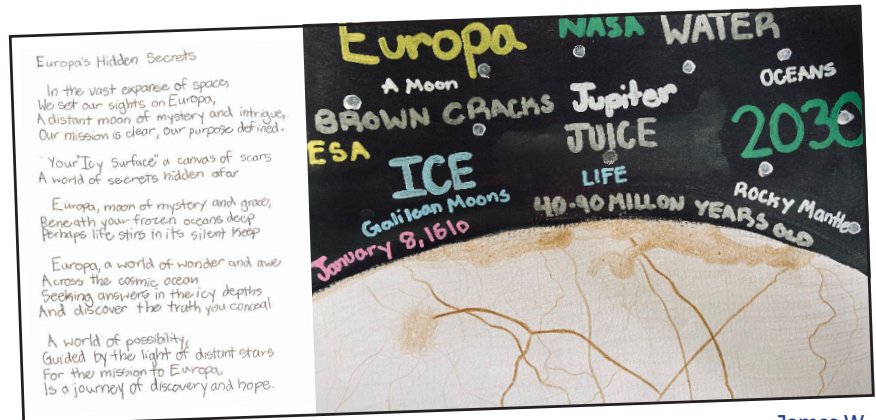 Europa's Hidden Secrets
In the vast expanse of space,
We set our sights on Europa,
A distant moon of mystery and intrigue,
Our mission is clear, our purpose defined.
"Your "Icy Surface" a canvas of scars
A world of secrets hidden afar
Europa, moon of mystery and grace,
Beneath your frozen oceans deep
Perhaps life stirs in its silent keep
Europa, a world of wonder and awe
Across the cosmic ocean
Seeking answers in the icy depths
And discover the truth you conceal
A world of possibility,
Guided by the light of distant stars
For the mission to Europa,
Is a journey of discovery and hope.
Europa NASA WATER
A Moon
OCEANS
BROWN CRACKS Jupiter
2030
ESA
JUICE
ICE
LIFE
Galilean Moons
Rocky Mantle
40-90 MILLON YEARS OLD
January 8, 1610
James W